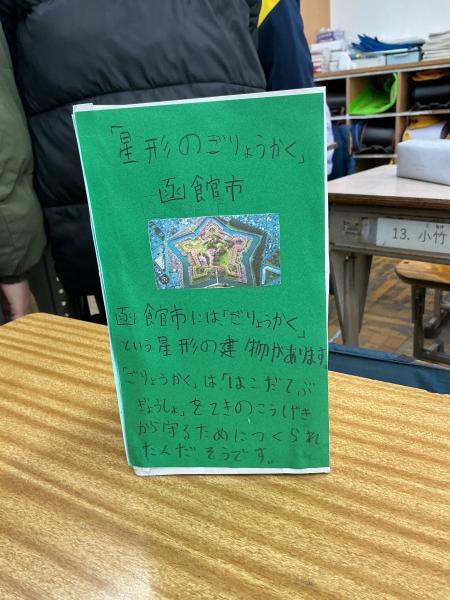 「星形のごりょうかく」
函館市
函館市には「ごりょうかく」
という星形の建物があります。
「ごりょうかく」は「はこだてぶ
ぎょうしょ」をてきのこうげき
から守るためにつくられ
たんだそうです。
13. 小竹